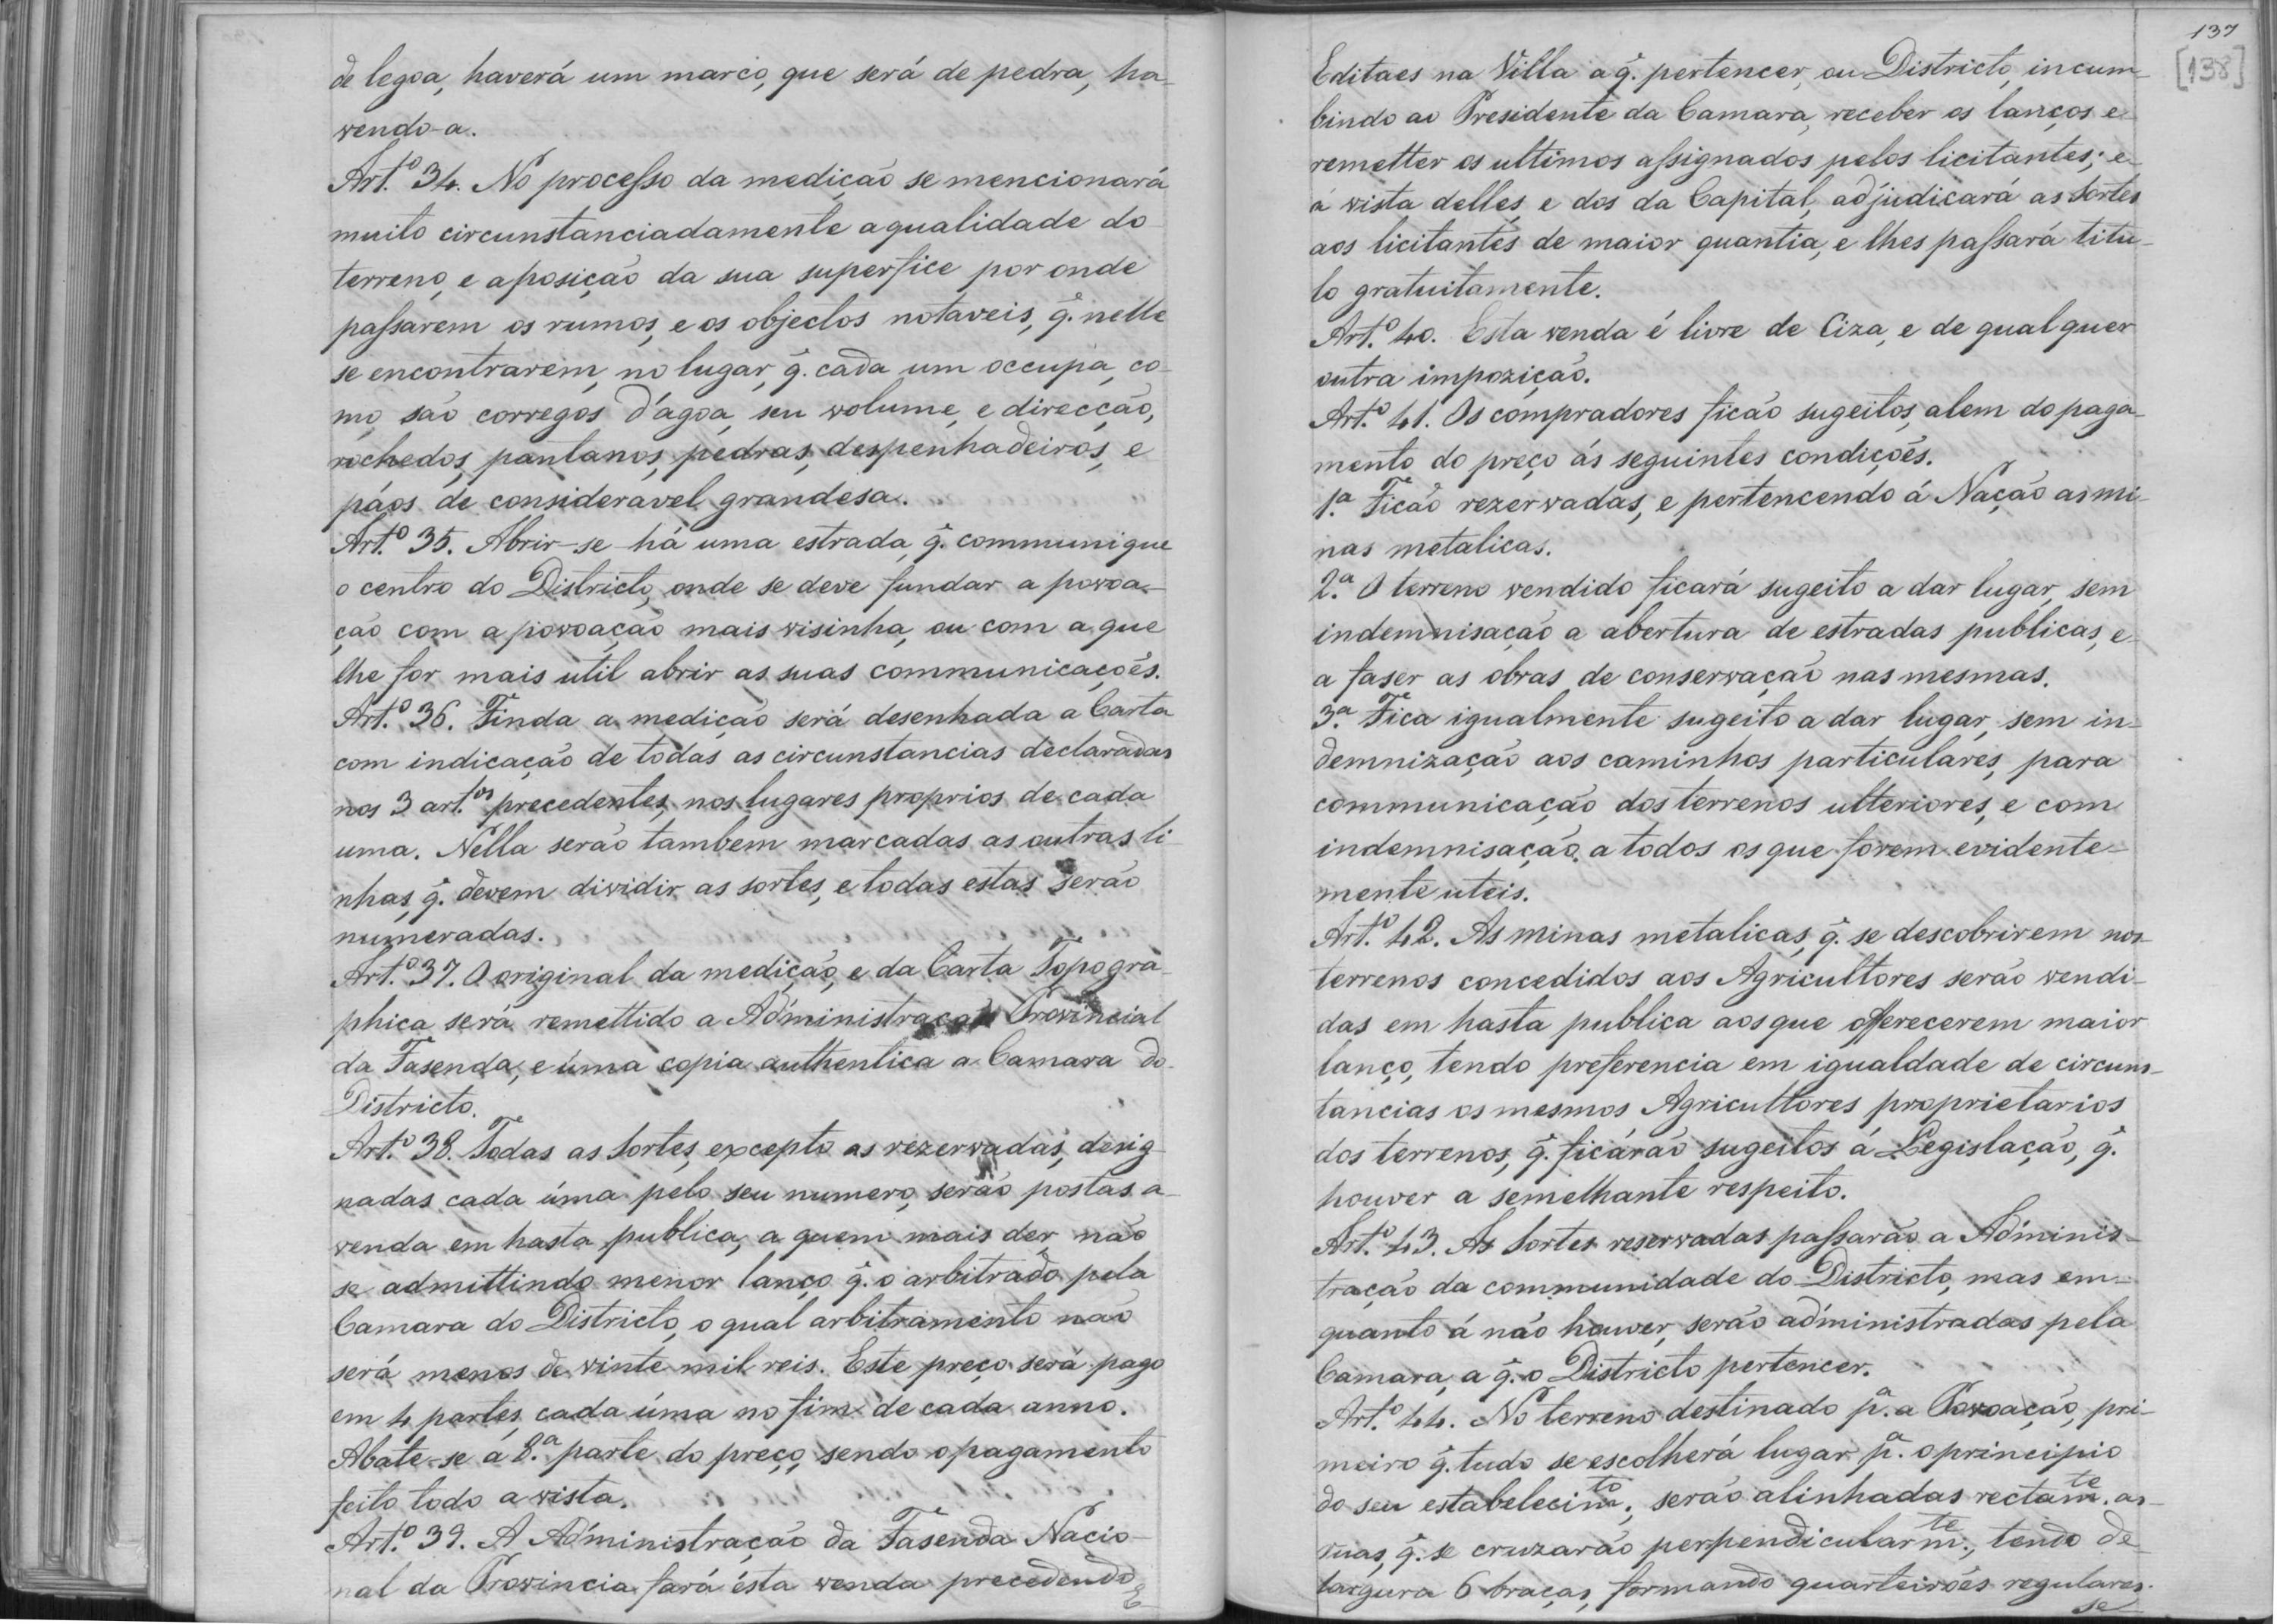 de legoa, haverá um marco, que será de pedra, ha-
vendo-a.
Art.º 34. No processo da medição se mencionará
muito circunstanciadamente a qualidade do
terreno, e a posição da sua superfice por onde
passarem os rumos, e os objectos notaveis, q̃. nelle
se encontrarem, no lugar, q̃. cada um occupa, co-
mo são corregos d'agoa, seu volume, e direcção,
rochedos, pantanos, pedras, despenhadeiros, e
páos de consideravel grandesa.
Art.º 35. Abrir-se há uma estrada, q̃. communique
o centro do Districto, onde se deve fundar a povoa-
ção com a povoação mais visinha, ou com a que
lhe for mais util abrir as suas communicações.
Art.º 36. Finda a medição será desenhada a Carta
com indicação de todas as circunstancias declaradas
nos 3 art.os precedentes, nos lugares proprios de cada
uma. Nella serão tambem marcadas as outras li-
nhas, q̃. devem dividir as sortes, e todas estas serão
numeradas.
Art.º 37. O original da medição, e da Carta Topogra-
phica será remettido a Administração Provincial
da Fasenda, e úma copia authentica a Camara do
Districto.
Art.º 38. Todas as Sortes, excepto as rezervadas, desig-
nadas cada úma pelo seu numero, serão postas a-
venda em hasta publica, a quem mais der não
se admittindo menor lanço q̃. o arbitrado pela
Camara do Districto, o qual arbitramento não
será menos de vinte mil reis. Este preço será pago
em 4 partes, cada úma no fim de cada anno.
Abate-se a 8.ª parte do preço, sendo o pagamento
feito todo a vista.
Art.º 39. A Administração da Fasenda Nacio-
nal da Provincia fará ésta venda precedendo
E
137
[138]
Editaes na Villa a q̃. pertencer, ou Districto, incum-
bindo ao Presidente da Camara, receber os lanços e
remetter os ultimos assignados pelos licitantes; e
á vista delles, e dos da Capital, adjudicará as Sortes
aos licitantes de maior quantia, e lhes passará titu-
lo gratuitamente.
Art.º 40. Esta venda é livre de Ciza, e de qualquer
outra impozição.
Art.º 41. Os compradores ficão sugeitos, alem do paga-
mento do preço ás seguintes condições.
1.ª Ficão rezervadas, e pertencendo á Nação as mi-
nas metalicas.
2.ª O terreno vendido ficará sugeito a dar lugar, sem
indemnisação a abertura de estradas publicas, e
a faser as obras de conservação nas mesmas.
3.ª Fica igualmente sugeito a dar lugar, sem in-
demnização aos caminhos particulares, para
communicação dos terrenos ulteriores, e com
indemnisação, a todos os que forem evidente-
mente uteis.
Art.º 42. As minas metalicas, q̃. se descobrirem nos
terrenos concedidos aos Agricultores serão vendi-
das em hasta publica aos que offerecerem maior
lanço, tendo preferencia em igualdade de circuns-
tancias os mesmos Agricultores proprietarios
dos terrenos, q̃. ficárão sugeitos á Legislação, q̃.
houver a semelhante respeito.
Art.º 43. As Sortes reservadas passarão a Adminis-
tração da communidade do Districto, mas em-
quanto á não houver, serão administradas pela
Camara, a q̃. o Districto pertencer.
Art.º 44. No terreno destinado p.ª a Povoação, pri-
meiro q̃. tudo se escolherá lugar p.ª o principio
do seu estabelecim.to; serão alinhadas rectam.te as
ruas, q̃. se cruzarão perpendicularm.te, tendo de
largura 6 braças, formando quarteirões regulares.
se